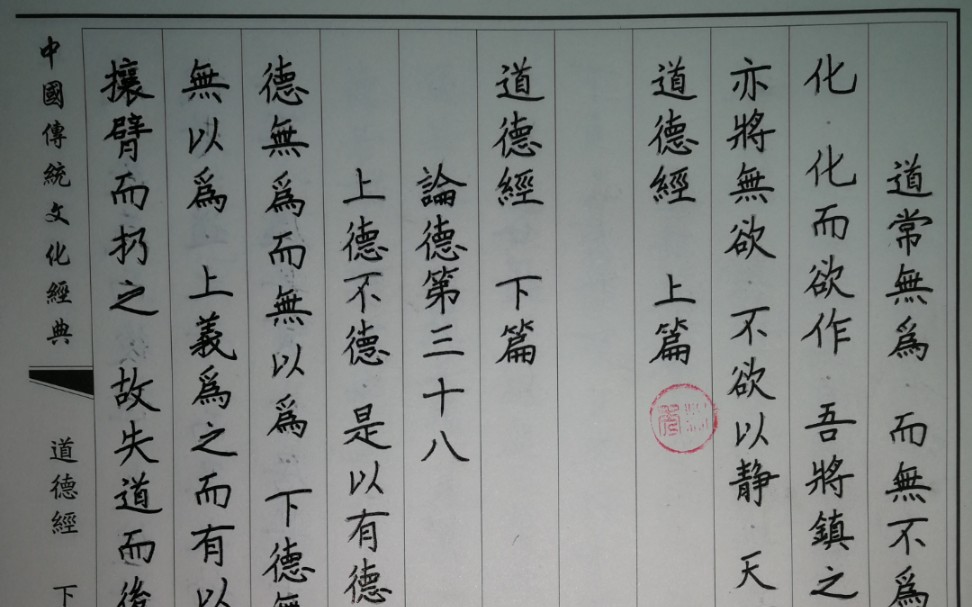 道常無爲 而無不爲
化 化而欲作 吾將鎮之
亦將無欲 不欲以静 天
道德經 上篇
道德經 下篇
論德第三十八
上德不德 是以有德
德無爲而無以爲 下德無
無以爲 上義爲之而有以
攘臂而扔之 故失道而後
中國傳統文化經典
道德經 下